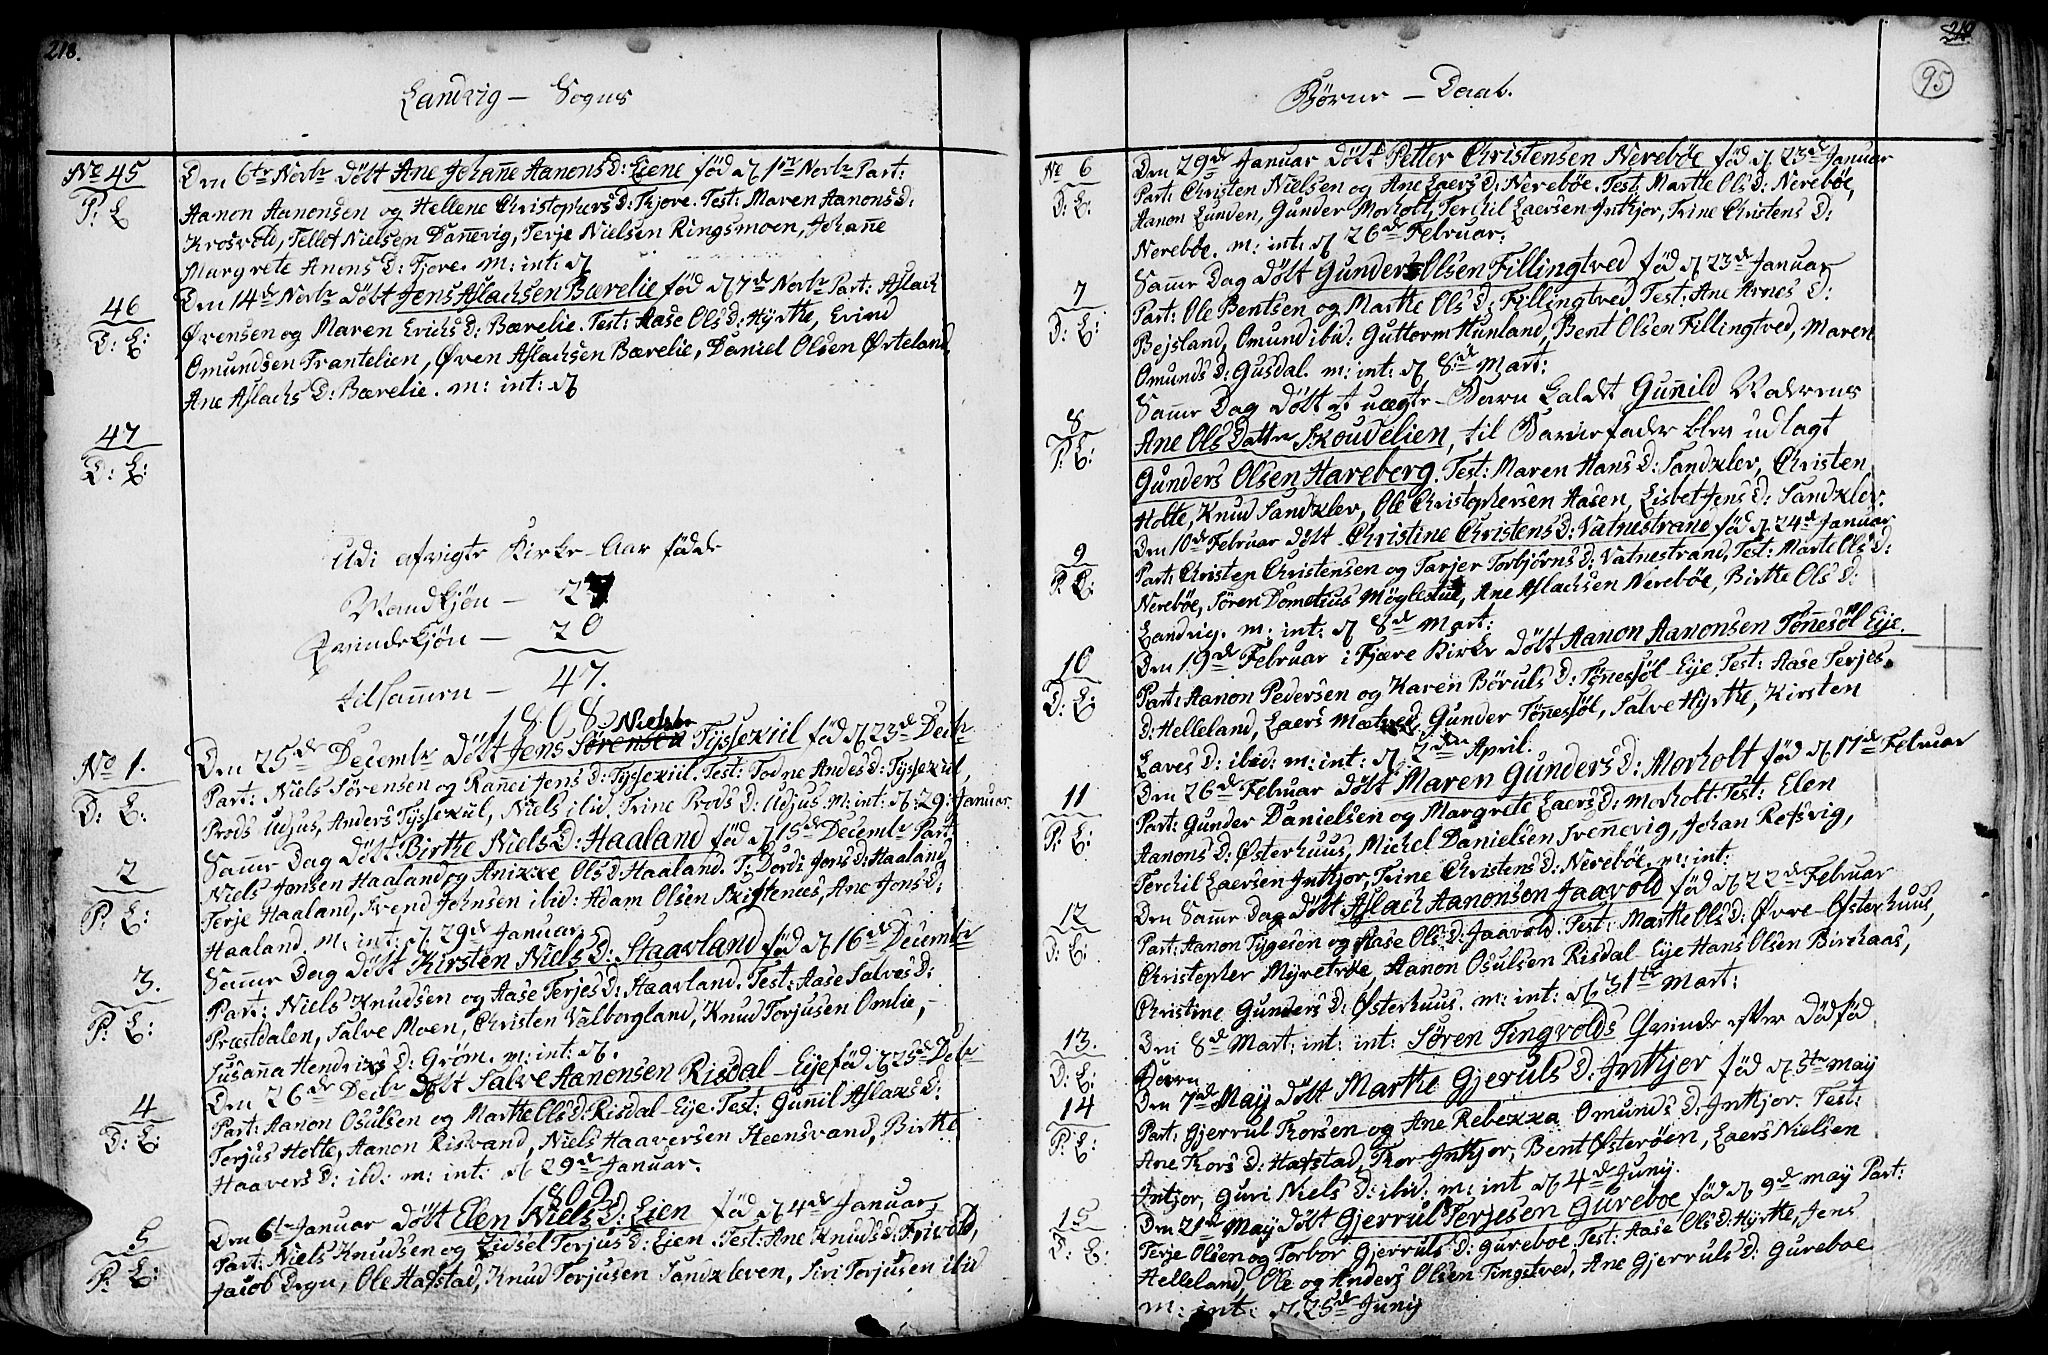 218.
Landvig – Sogns
No 45
P: E
Den 6te Novbr Döbt Ane Johan̄e Aanons D: Eiene föd d 1te Novbr Part:
Aanon Aanonsen og Hellene Christophers D: Fjore. Test: Maren Aanons D:
Krosvold, Tellet Nielsen Dan̄evig, Terje Nielsen Ringsmoen, Johan̄e
Margrete Anons D: Fjore. m: int: d
46
D: E:
Den 14de Novbr Döbt Jens Aslachsen Bærelie föd d 7de Novbr Part: Aslach
Övensen og Maren Erichs D: Bærelie. Test: Aase Ols D: Hyrthe, Erind
Omundsen Frantelien, Öven Aslachsen Bærelie, Daniel Olsen Örteland,
Ane Aslachs D: Bærelie. m: int: d
47
D: E:
Udi afvigte Kirke-Aar födde
Mandkjön – 27
Qvindekjön – 20
tilsam̄en – 47.
1808
No 1.
D: E:
Den 25de Decembr Döbt Jens Sörensen Nielsen Tyssekiil föd d 23de Decbr
Part: Niels Sörensen og Ran̄ei Jens D: Tyssekiil. Test: Todne Andes D: Tyssekiil,
Prods Udjus, Anders Tyssekiil, Niels ibid, Trine Prods D: Udjus. m: int: d. 29: Januar.
2
P: E:
Sam̄e Dag Döbt Birthe Niels D: Haaland föd d 15de Decembr Part:
Niels Jonsen Haaland og Anikke Ols D: Haaland. T: Dordi Jons D: Haaland,
Terje Haaland, Svend Johnsen ibid: Adam Olsen Skiftenes, Ane Jons D:
Haaland. m: int: d 29de Januar.
3.
P: E:
Sam̄e Dag Döbt Kirsten Niels D: Haavland föd d 16de Decembr
Part: Niels Knudsen og Aase Terjes D: Haavland. Test: Aase Salves D:
Præstdalen, Salve Moen, Christen Valborgland, Knud Torjusen Omlie,
Susan̄a Hendriks D: Gröm. m: int: d.
4
D: E:
Den 26de Decbr Döbt Salve Aanonsen Risdal-Eje föd d 25de Decbr
Part: Aanon Osulsen og Marthe Ols D: Risdal-Eje. Test: Gun̄il Aslaks D:
Terjus Holte, Aanon Risvand, Niels Haaversen Steensvand, Birthe
Haavers D: ibd: m: int: d 29de Januar.
1809
5
P: E:
Den 6te Januar Döbt Elen Niels D: Eien föd d 4de Januar
Part: Niels Knudsen og Zidsel Torjus D: Ejen. Test: Ane Knuds D: Frivold,
Jacob Degn, Ole Hafstad, Knud Torjusen Sandkleven, Siri Torjusen ibid
219
95
Börne – Daab.
No 6
D: E:
Den 29de Januar Döbt Petter Christensen Nereböe föd d 23de Januar
Part: Christen Nielsen og Ane Laers D: Nereböe. Test: Marthe Ols D: Nereböe,
Aanon Lunden, Gunder Morholt, Terchil Laersen Inthjor, Trine Christens D:
Nereböe. m: int: d 26de Februar.
7
D: E:
Sam̄e Dag Döbt Gunder Olsen Fillingtved föd d 23de Januar
Part: Ole Bentsen og Marthe Ols D: Fillingtved Test: Ane Arnes D:
Bejsland, Omund ibid: Guttorm Hunland, Bent Olsen Fillingtved, Maren
Omunds D: Gusdal. m: int: d 8de Mart:
8
P: E:
Sam̄e Dag Döbt et uægte Barn kaldt Gun̄ild Moderens
Ane Ols Datter Skoudelien, til Barnefader blev udlagt
Gunders Olsen Hareberg. Test: Maren Hans D: Sandklev, Christen
Holte, Knud Sandklev, Ole Christophersen Aasen, Lisbet Jens D: Sandklev.
9
P: E:
Den 10de Februar Döbt Christine Christens D: Vatnestrane föd d 24de Januar
Part: Christen Christensen og Tarjer Torbjörns D: Vatnestrand, Test: Marte Ols D:
Nereböe, Sören Dometius Möglestue, Ane Aslachsen Nereböe, Birthe Ols D:
Landvig. m: int: d 8de Mart:
10
D: E:
Den 19de Februar i Fjære Kirke Döbt Aanon Aanonsen Tön̄esöl Eje.
Part: Aanon Pedersen og Karen Böruls D: Tön̄esöl-Eje. Test: Aase Terjes
D: Helleland, Laers Mætved, Gunder Tön̄esöl, Salve Hyrthe, Kirsten
Laves D: ibid: m: int: d 2den April.
11
P: E:
Den 26de Februar Döbt Maren Gunders D: Morholt föd d 17de Februar
Part: Gunder Danielsen og Margrete Laers D: Morholt. Test: Elen
Aanons D: Österhuus, Michel Danielsen Sven̄evig, Johan Refsvig,
Terchil Laersen Inthjor, Trine Christens D: Nereböe. m: int:
12
D: E:
Den Sam̄e Dag Döbt Aslach Aanonsen Jaavold föd d 22de Februar
Part: Aanon Tygesen og Aase Ols D: Jaavold. Test: Marthe Ols D: Övre-Österhuus,
Christopher Myretröe, Aanon Osulsen Risdal-Eje Hans Olsen Birchaas,
Christine Gunders D: Österhuus. m: int: d 31te Mart:
13.
D: E:
Den 8de Mart: int: int: Sören Tingvolds Qvinde efter Dödföd
Barn
14
P: E:
Den 7de May Döbt Marthe Gjeruls D: Inthjor föd d 5te May
Part: Gjerrul Thorsen og Ane Rebekka Omunds D: Inthjor. Test:
Ane Thors D: Hafstad, Thor Inthjor, Bent Österöen, Laers Nielsen
Intjor, Guri Niels D: ibid: m: int d 4de Junij.
15
D: E:
Den 21de May Döbt Gjerrul Terjesen Gureboe föd d 9de May Part:
Terje Olsen og Torbor Gjerruls D: Gureboe. Test: Aase Ols D: Hyrthe, Jens
Helleland, Ole og Anders Olsen Tingstved, Ane Gjerruls D: Gureboe
m: int: d. 25de Junij